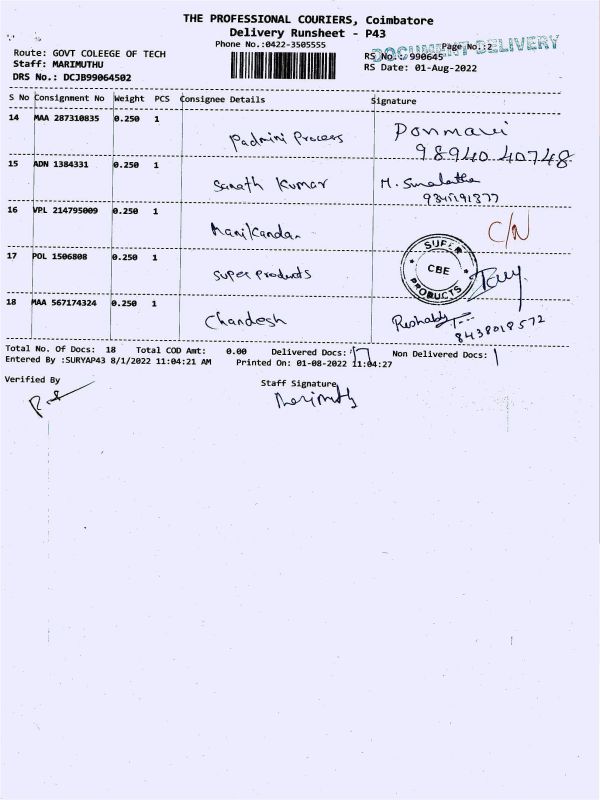 THE PROFESSIONAL COURIERS, Coimbatore
Delivery Runsheet - P43
Phone No.:0422-3505555
DOCUMENT DELIVERY
Page No.:2
Route: GOVT COLEEGE OF TECH
RS No.: 990645
Staff: MARIMUTHU
RS Date: 01-Aug-2022
DRS No.: DCJB99064502
S No Consignment No Weight PCS Consignee Details Signature
14 MAA 287310835 0.250 1 Padmini Process Ponmani
98940 40748
15 ADN 1384331 0.250 1 Sarath Kumar M. Sumalatha
16 VPL 214795009 0.250 1 Manikandan C/N
17 POL 1506808 0.250 1 Super Products
SUPER PRODUCTS CBE
18 MAA 567174324 0.250 1 Chandesh
8438018572
Total No. Of Docs: 18 Total COD Amt: 0.00 Delivered Docs: 17 Non Delivered Docs: 1
Entered By :SURYAP43 8/1/2022 11:04:21 AM Printed On: 01-08-2022 11:04:27
Verified By Staff Signature
Marimuthu